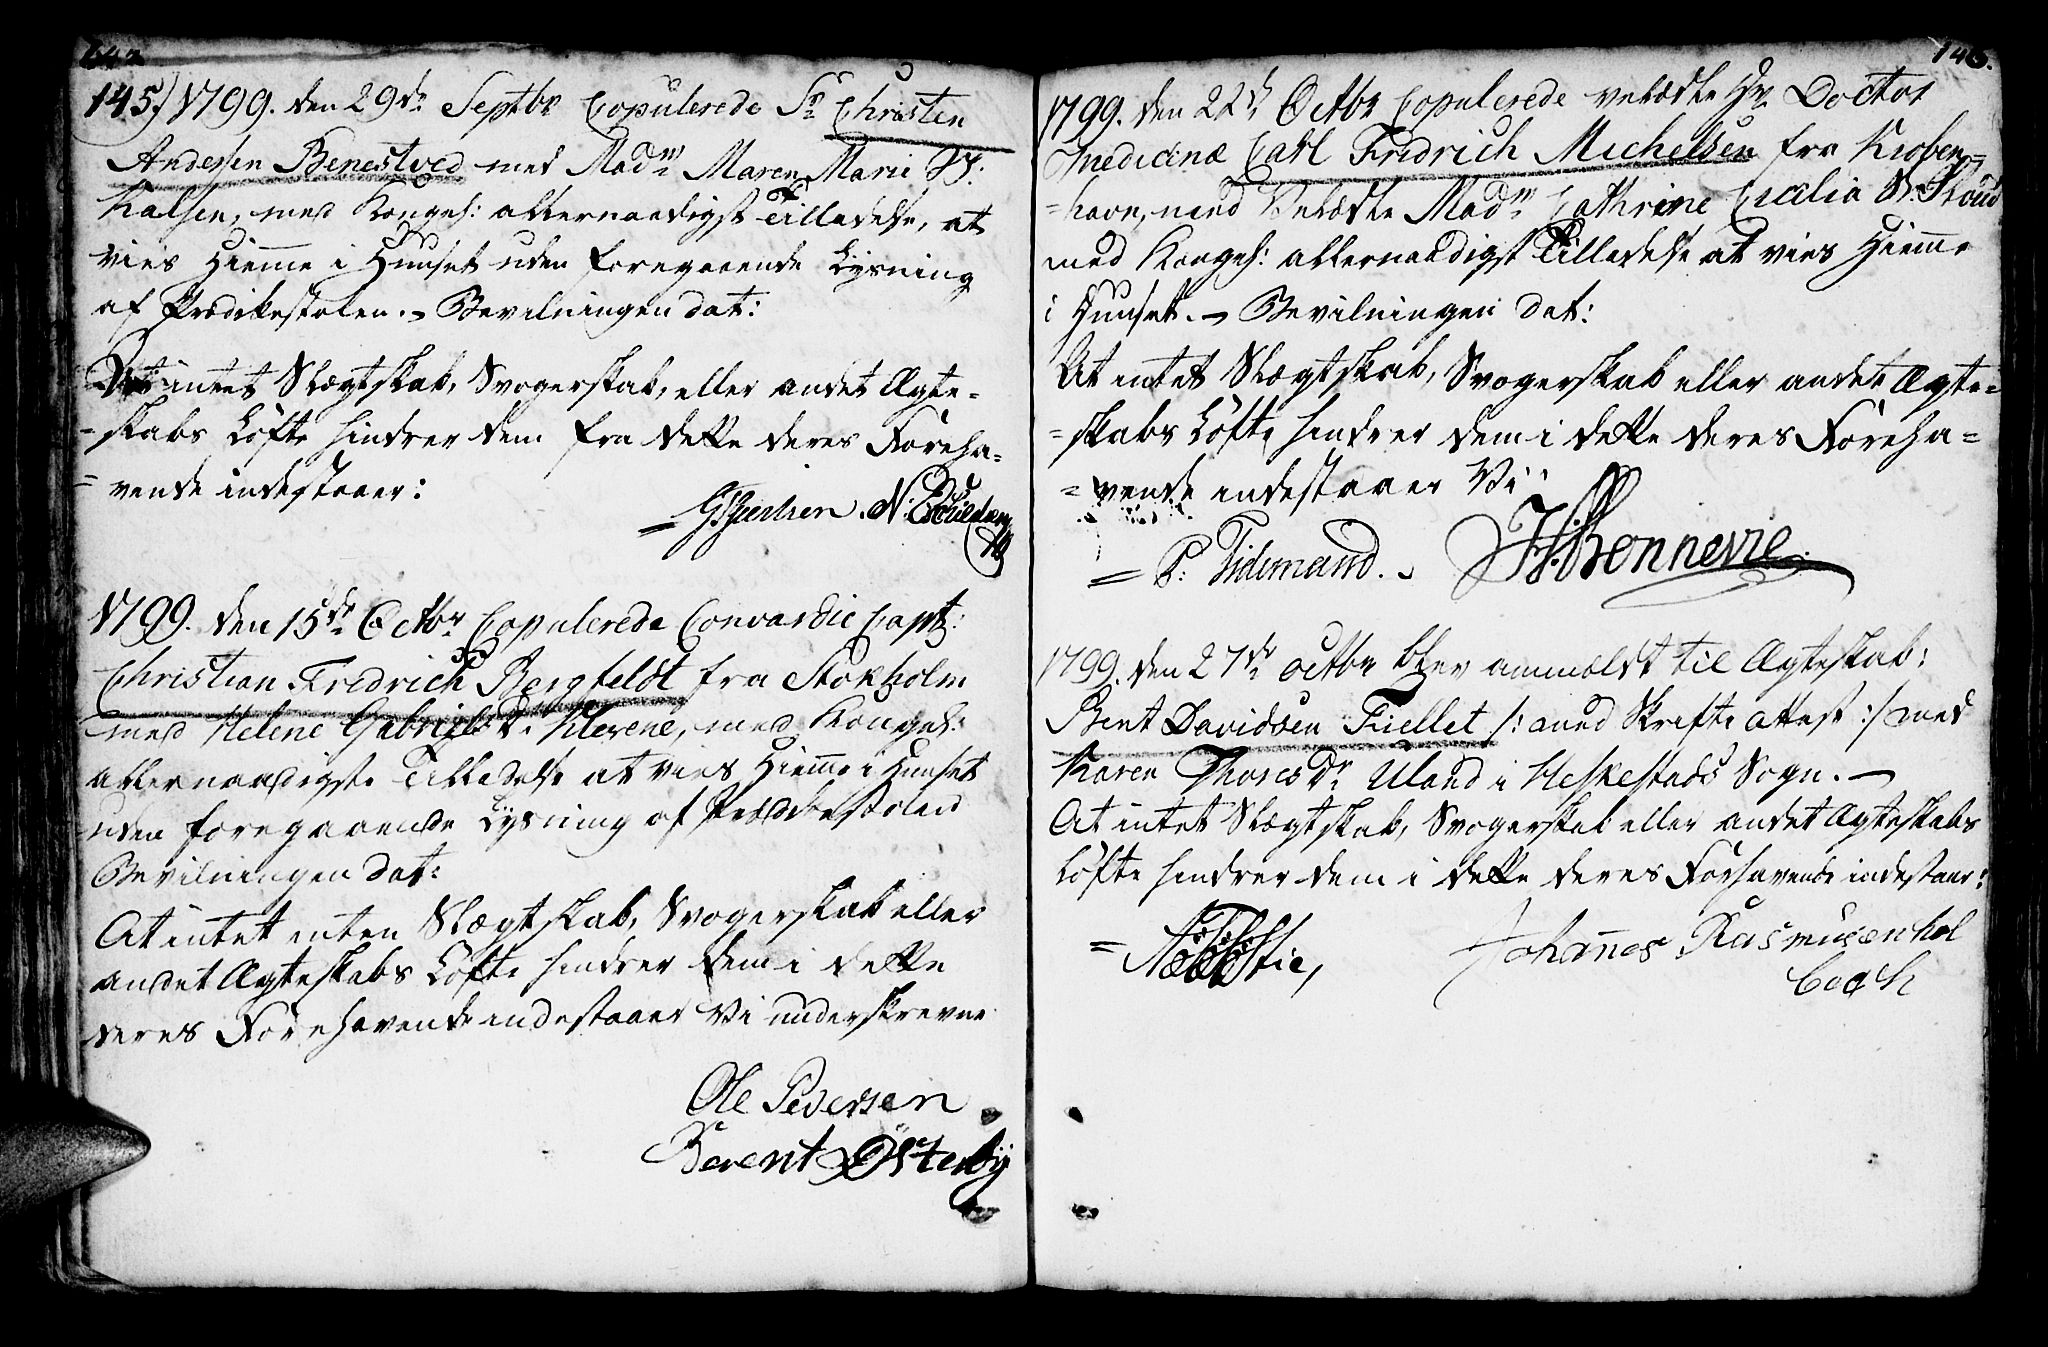 145.) 1799. den 29de Septbr Copulerede Sr Christen
Andersen Benestved med Madm Maren Marie
med Kongel: allernaadigst Tilladelse, at
vies Hieme i Huuset uden foregaaende Lysning
af Prædikestolen. - Bevilningen dat:
At intet Slægtskab, Svogerskab, eller andet Ægte-
=skabs Löfte hindrer dem fra dette deres Foreha-
=vende indestaaer:
1799. den 15de Octbr Copulerede Convardie Capt:
Christian Fredrich Bergfeldt fra Stokholm
med Helene Gabriels D. Klerene, med Kongel:
allernaadigste Tilladelse at vies Hieme i Huuset
uden foregaaende Lysning af Prædikestolen
Bevilningen dat:
At intet enten Slægtskab, Svogerskab eller
andet Ægteskabs Löfte hindrer dem i dette
deres Forehavende indestaaer Vi underskrevne
Ole Pedersen
Berent Østerbÿ
146.
1799. den 22de Octbr Copulerede velædle Hr Doctor
Medicinæ Carl Fredrich Michelsen fra Kioben-
=havn, med Velædle Madm Cathrine Cecilia
med Kongel: allernaadigst Tilladelse at vies Hieme
i Huuset. - Bevilningen dat:
At intet Slægtskab, Svogerskab eller andet Ægte-
=skabs Löfte hindrer dem i dette deres Foreha-
=vende indestaaer Vi
= P: Tidemand. H: Bonnevie.
1799. den 27de Octbr blev anmeldt til Ægteskab:
Bent Davidsen Fiellet /: med Skrifte Attest :/ med
Karen Thores Dr Uland i Heskestads Sogn. -
At intet Slægtskab, Svogerskab eller andet Ægteskabs
Löfte hindrer dem i dette deres Forhavende indestaaer:
Johannes Rasmusen